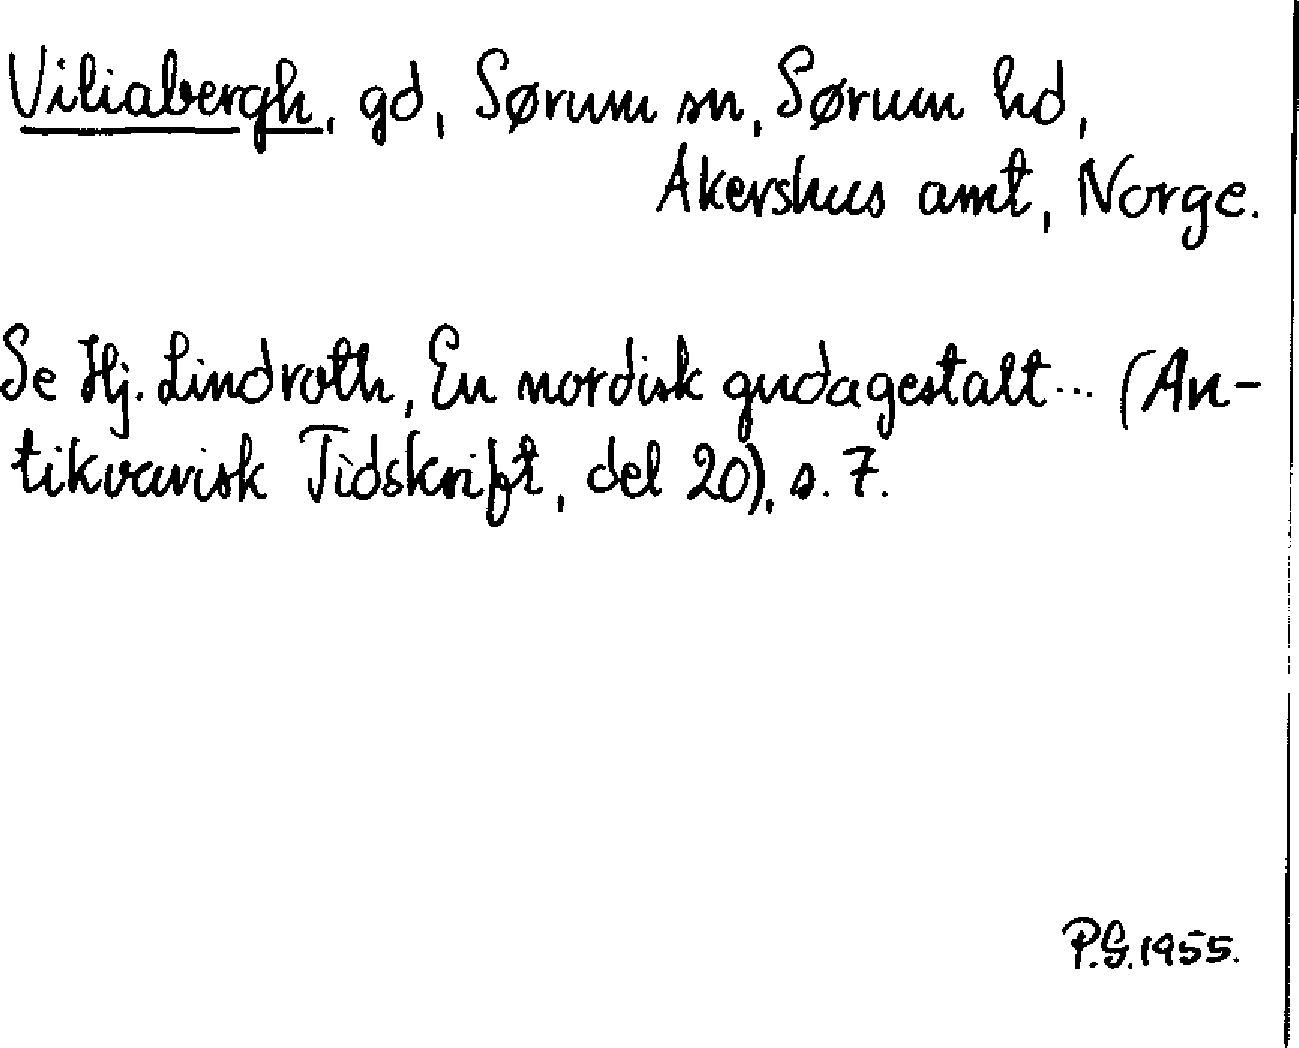 Viliabergh, gd, Sørum sn, Sørum hd,
Akershus amt, Norge.
Se Hj. Lindroth, En nordisk gudagestalt... (An-
tikvarisk Tidskrift, del 20), s. 7.
P.G. 1955.